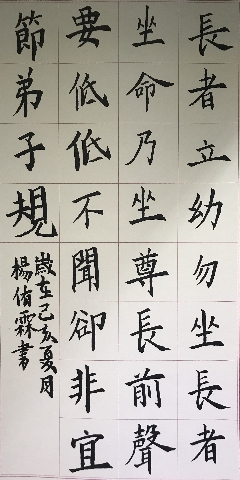 長者立幼勿坐長者
坐命乃坐尊長前聲
要低低不聞卻非宜
節弟子規
歲在己亥夏月
楊侑霖書